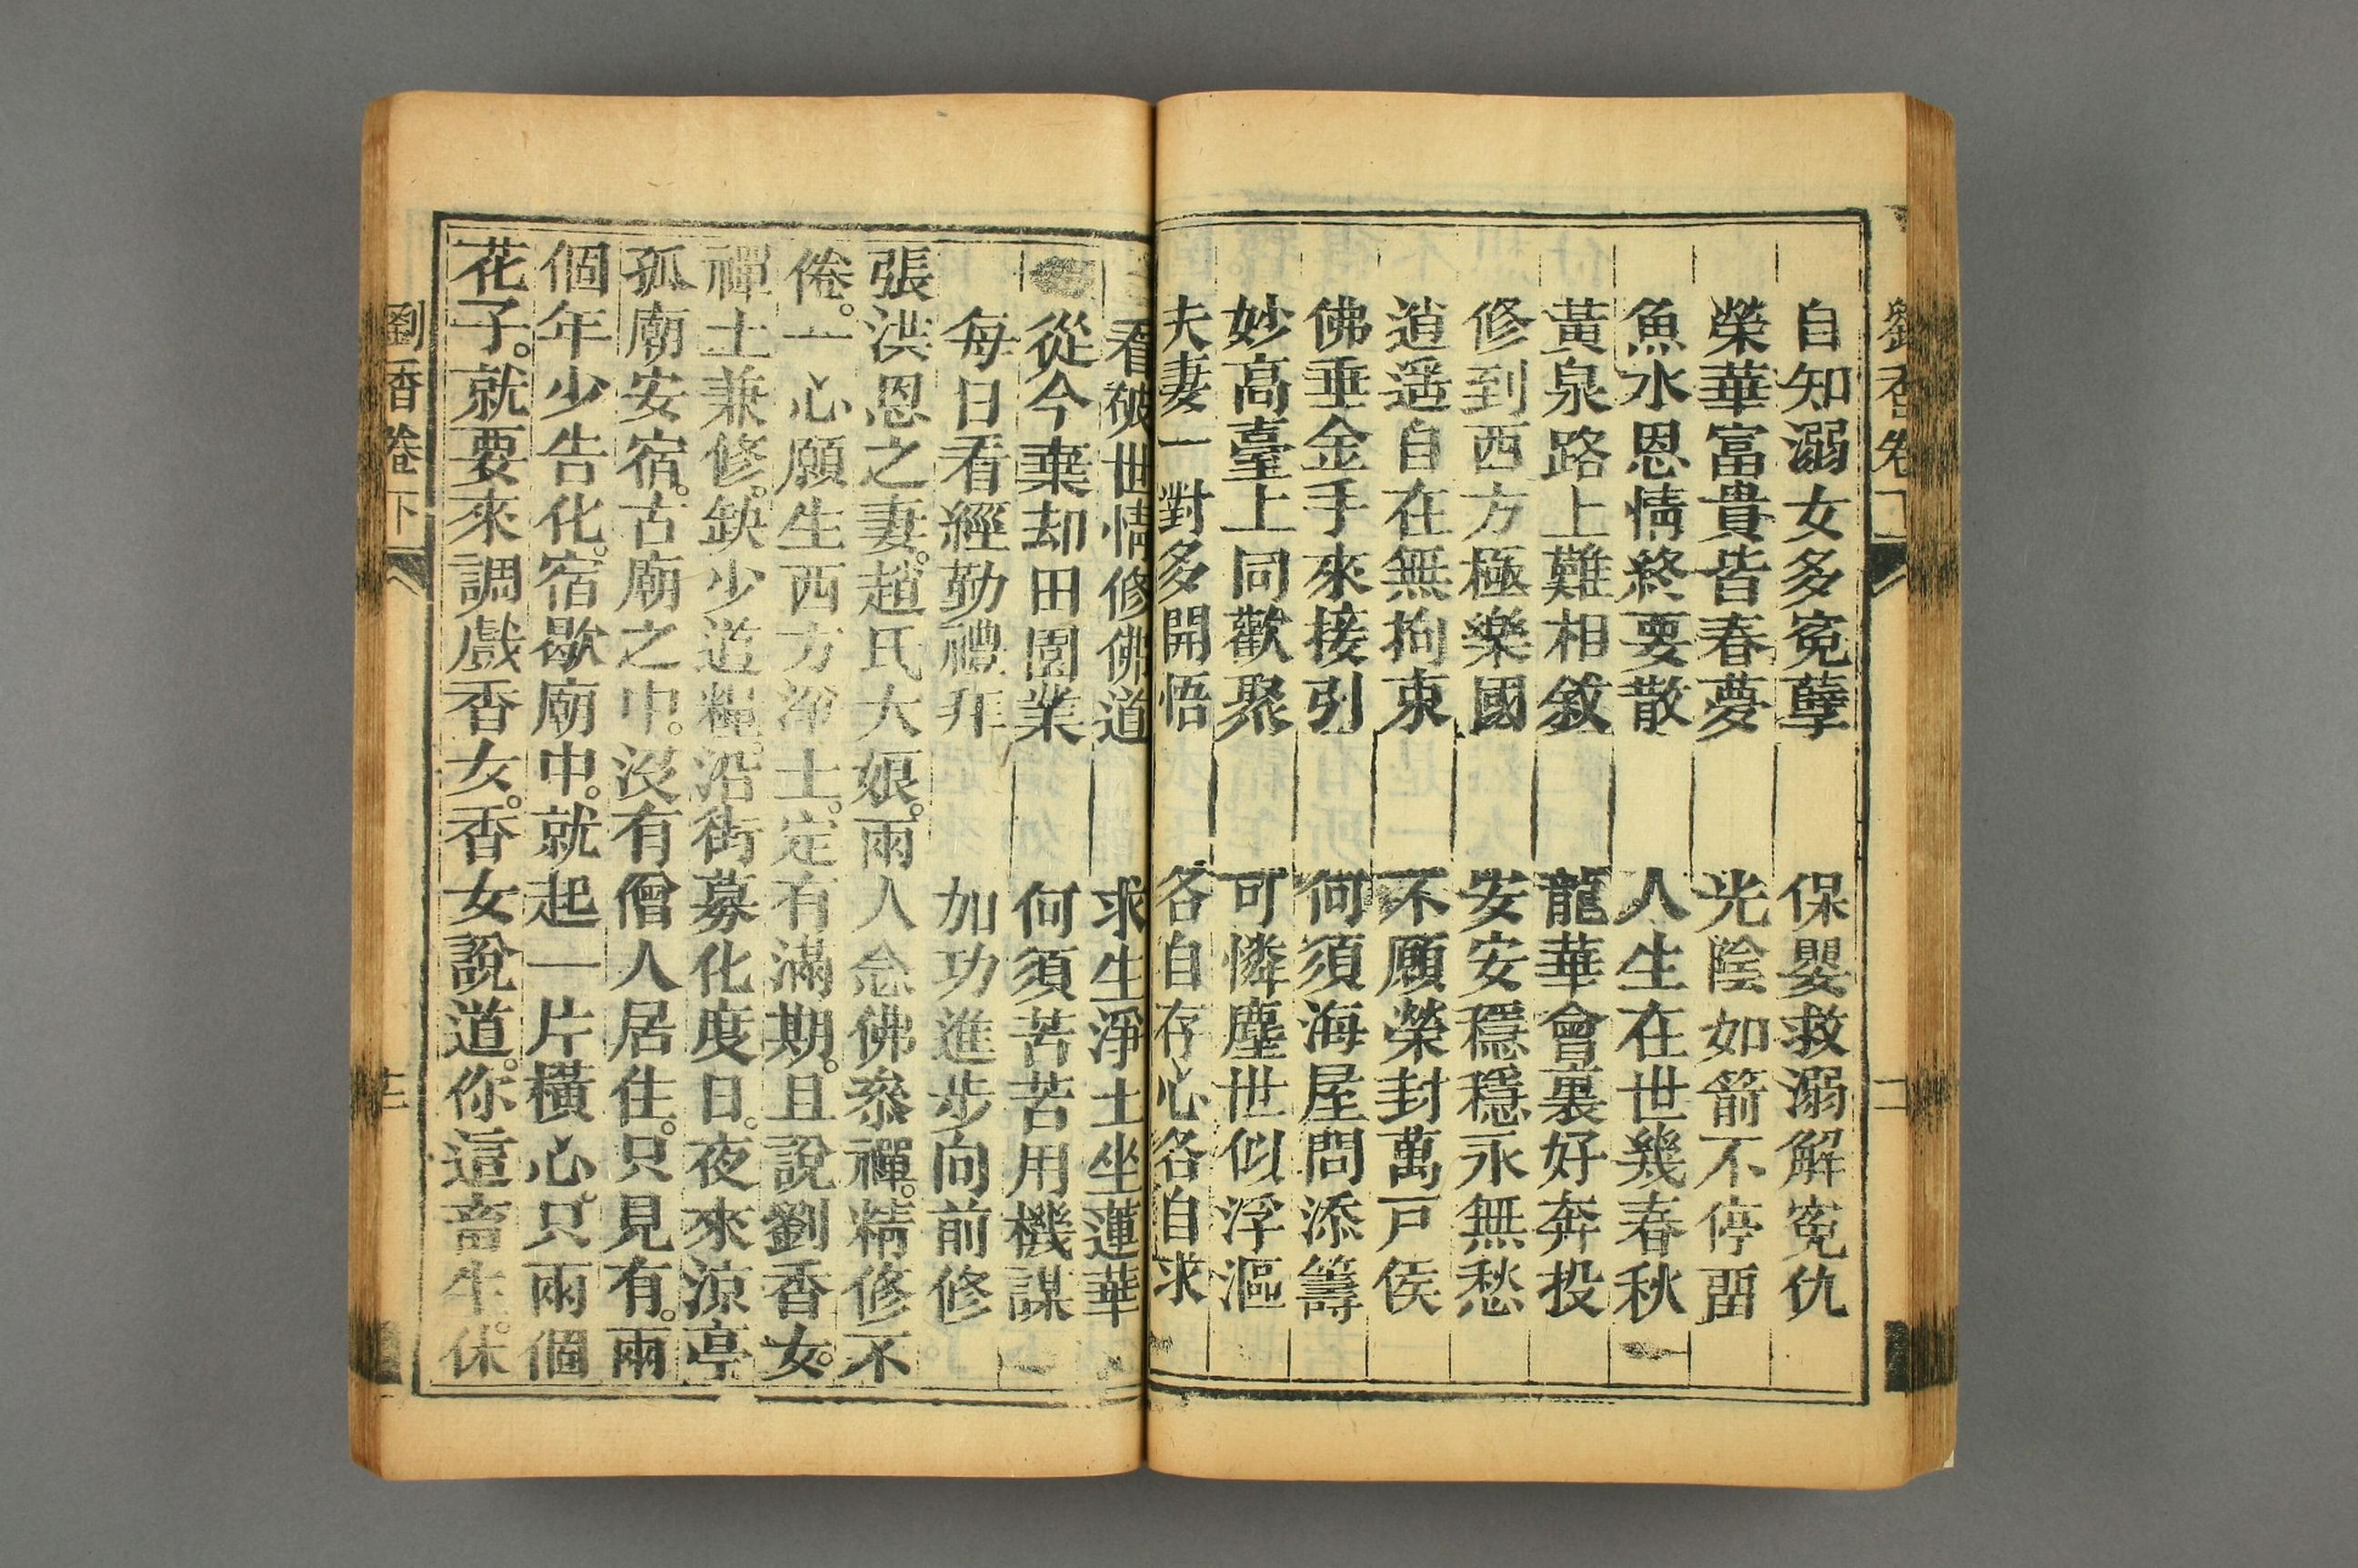 劉香卷下
自知溺女多冤孽　保嬰救溺解冤仇
榮華富貴皆春夢　光陰如箭不停畱
魚水恩情終要散　人生在世幾春秋
黃泉路上難相敘　龍華會裏好奔投
修到西方極樂國　安安穩穩永無愁
逍遥自在無拘束　不願榮封萬戸侯
佛垂金手來接引　何須海屋問添籌
妙高臺上同歡聚　可憐塵世似浮漚
夫妻一對多開悟　各自存心各自求
看破世情修佛道　求生淨土坐蓮華
從今棄却田園業　何須苦苦用機謀
每日看經勤禮拜　加功進步向前修
張洪恩之妻。趙氏大娘。兩人念佛叅禪。精修不
倦。一心願生西方淨土。定有滿期。且說劉香女。
禪土兼修。缺少道糧。沿街募化度日。夜來涼亭
孤廟安宿。古廟之中。沒有僧人居住。只見有。兩
個年少告化。宿歇廟中。就起一片橫心。只兩個
花子。就要來調戲香女。香女說道。你這畜生。休
劉香卷下